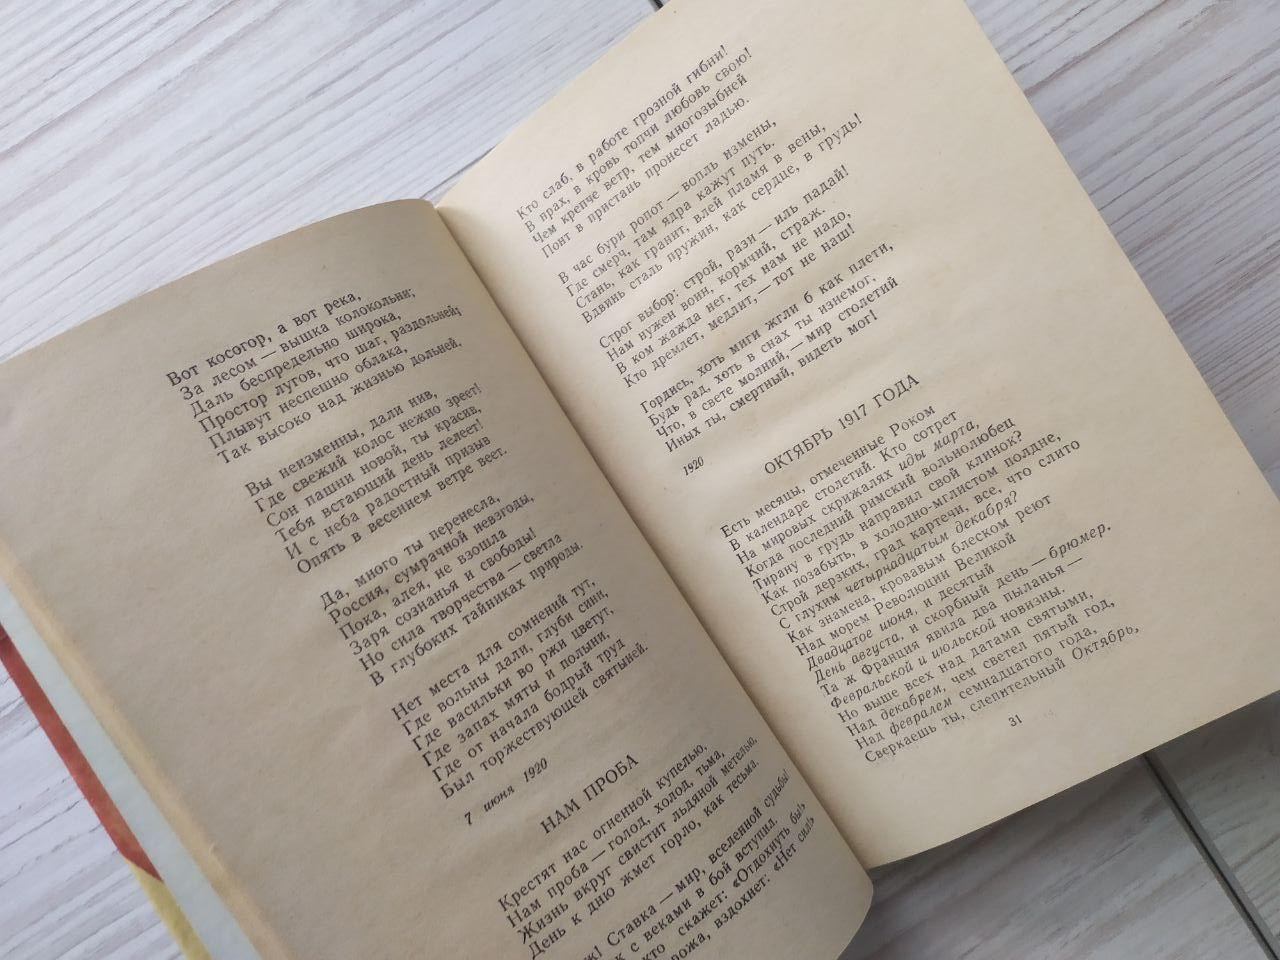 Вот косогор, а вот река,
За лесом — вышка колокольни;
Даль беспредельно широка,
Простор лугов, что шаг, раздольней;
Плывут неспешно облака,
Так высоко над жизнью дольней.
Вы неизменны, дали нив,
Где свежий колос нежно зреет!
Сон пашни новой, ты красив,
Тебя встающий день лелеет!
И с неба радостный призыв
Опять в весеннем ветре веет.
Да, много ты перенесла,
Россия, сумрачной невзгоды,
Пока, алея, не взошла
Заря сознанья и свободы!
Но сила творчества — светла
В глубоких тайниках природы.
Нет места для сомнений тут,
Где вольны дали, глуби сини,
Где васильки во ржи цветут,
Где запах мяты и полыни,
Где от начала бодрый труд
Был торжествующей святыней.
7 июня 1920
НАМ ПРОБА
Крестят нас огненной купелью,
Нам проба — голод, холод, тьма,
Жизнь вкруг свистит льдяной метелью,
День к дню жмет горло, как тесьма.
ж! Ставка — мир, вселенной судьбы!
к с веками в бой вступил.
кто скажет: «Отдохнуть бы!»
рожа, вздохнет: «Нет сил!»
Кто слаб, в работе грозной гибни!
В прах, в кровь топчи любовь свою!
Чем крепче ветр, тем многозыбней
Понт в пристань пронесет ладью.
В час бури ропот — вопль измены,
Где смерч, там ядра кажут путь.
Стань, как гранит, влей пламя в вены,
Вдвинь сталь пружин, как сердце, в грудь!
Строг выбор: строй, рази — иль падай!
Нам нужен воин, кормчий, страж.
В ком жажда нег, тех нам не надо,
Кто дремлет, медлит, — тот не наш!
Гордись, хоть миги жгли б как плети,
Будь рад, хоть в снах ты изнемог,
Что, в свете молний, — мир столетий
Иных ты, смертный, видеть мог!
1920
ОКТЯБРЬ 1917 ГОДА
Есть месяцы, отмеченные Роком
В календаре столетий. Кто сотрет
На мировых скрижалях иды марта,
Когда последний римский вольнолюбец
Тирану в грудь направил свой клинок?
Как позабыть, в холодно-мглистом полдне,
Строй дерзких, град картечи, все, что слито
С глухим четырнадцатым декабря?
Как знамена, кровавым блеском реют
Над морем Революции Великой
Двадцатое июня, и десятый
День августа, и скорбный день — брюмер.
Та ж Франция явила два пыланья —
Февральской и июльской новизны.
Но выше всех над датами святыми,
Над декабрем, чем светел пятый год,
Над февралем семнадцатого года,
Сверкаешь ты, слепительный Октябрь,
31